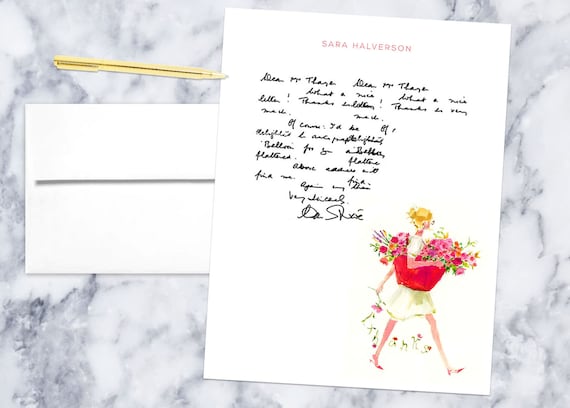 SARA HALVERSON
Dear Mr Dear Mr
What a nice What a nice
letter! Thanks letter! Thanks so very
much. much.
Of course I'd be Of
delighted to autograph
"Balloon" for
flattered. flattere
Above address will
find me.
Again my
Very sincerely,
thanks